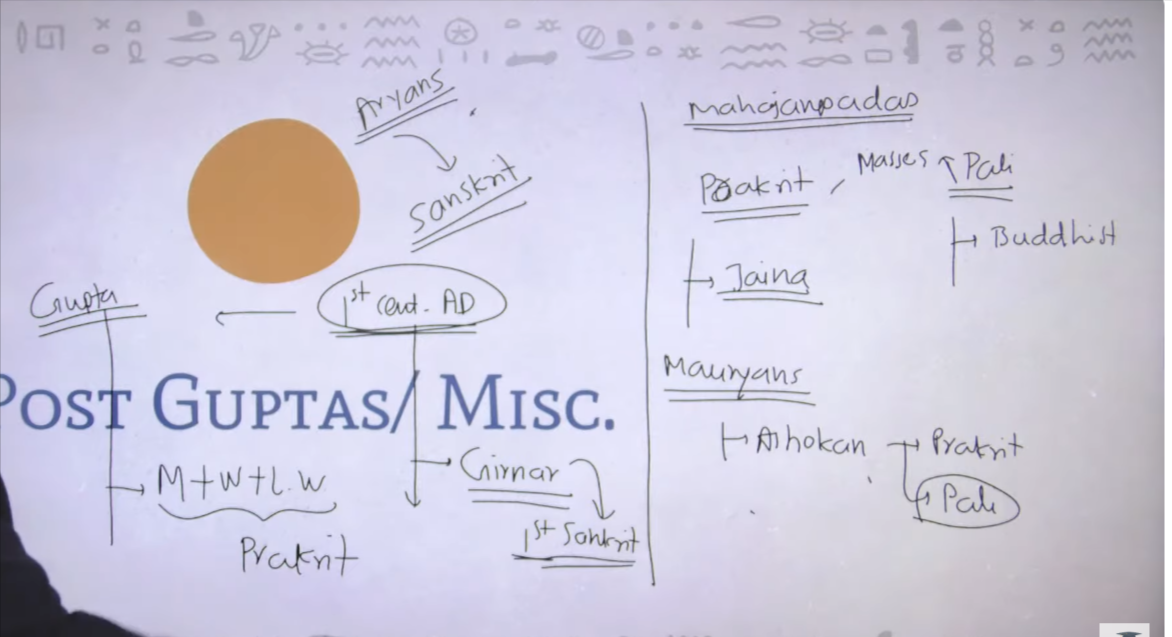 Aryans
Sanskrit
Gupta
1st cent. AD
POST GUPTAS/ MISC.
M+W+L.W
Prakrit
Girnar
1st Sankrit
Mahajanpadas
Prakrit, Masses Pali
Buddhist
Jaina
Mauryans
Ashokan Prakrit
Pali